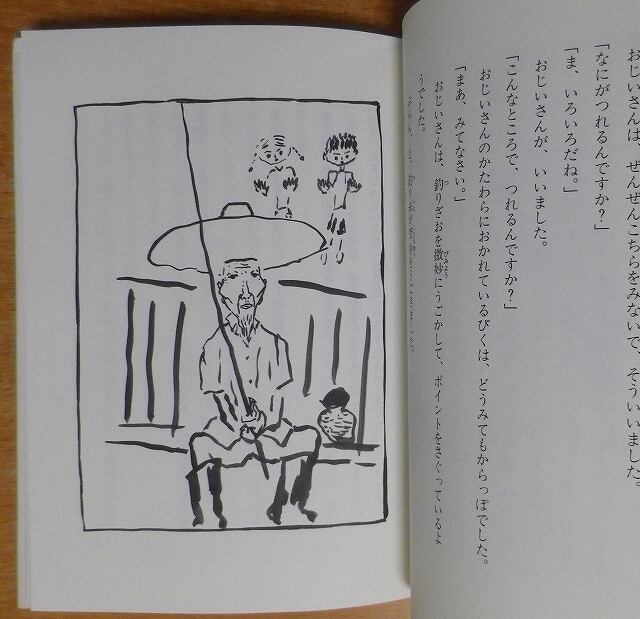 おじいさんは、ぜんぜんこちらをみないで、そういいました。
「なにがつれるんですか?」
「ま、いろいろだね。」
おじいさんが、いいました。
「こんなところで、つれるんですか?」
おじいさんのかたわらにおかれているびくは、どうみてもからっぽでした。
「まあ、みてなさい。」
おじいさんは、釣りざおを微妙にうごかして、ポイントをさぐっているよ
うでした。